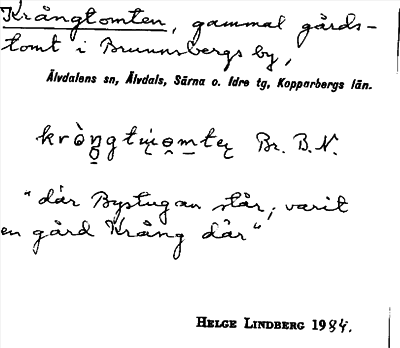 Krångtomten, gammal gårds-
tomt i Brunnsbergs by,
Älvdalens sn, Älvdals, Särna o. Idre tg, Kopparbergs län.
Br. B.N.
"där Bystugan står; varit
en gård Krång där"
HELGE LINDBERG 1984.